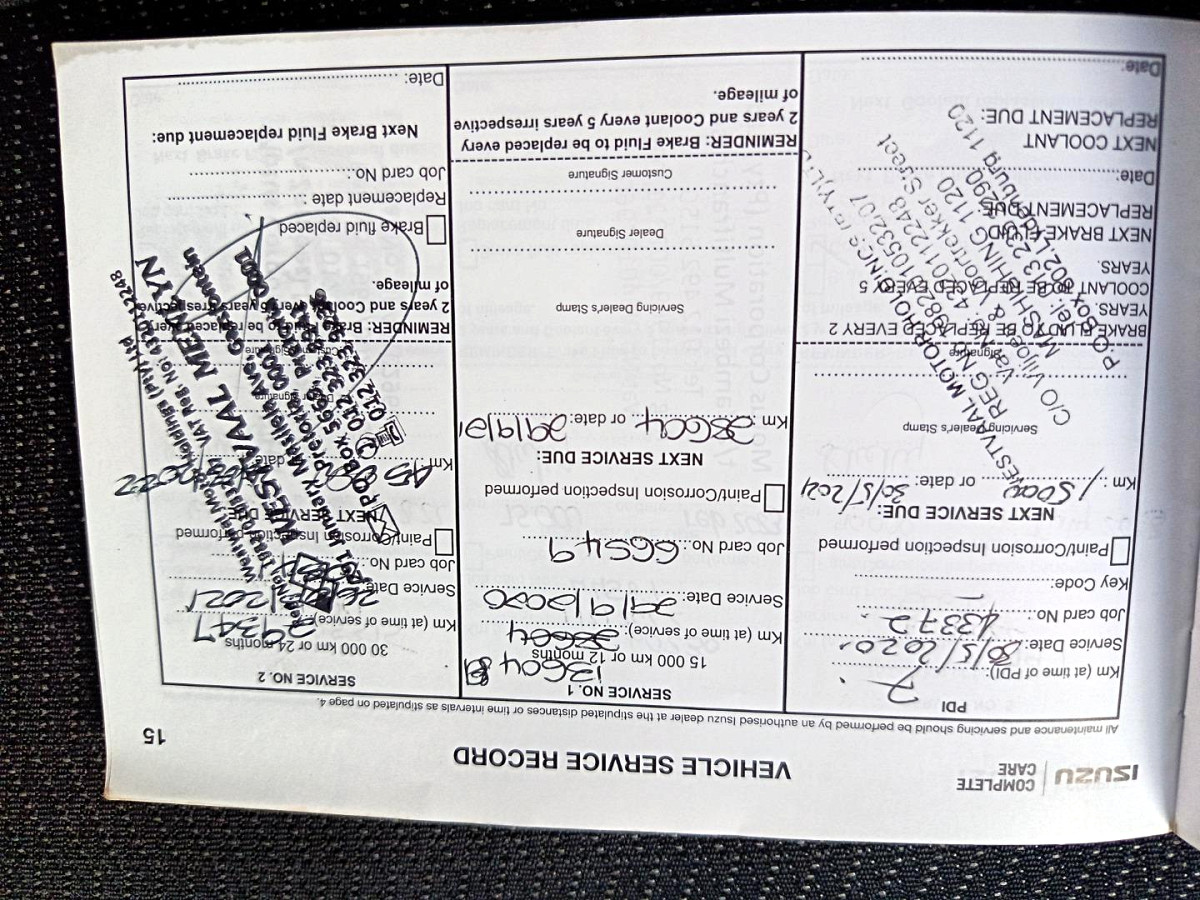 ISUZU
COMPLETE
CARE
VEHICLE SERVICE RECORD
15
All maintenance and servicing should be performed by an authorised Isuzu dealer at the stipulated distances or time intervals as stipulated on page 4.
PDI
Km (at time of PDI): 7
Service Date: 30/5/2020
Job card No.: 43372
Key Code: –
Paint/Corrosion Inspection performed
NEXT SERVICE DUE:
Km.: 15000 or date: 30/5/2021
Servicing Dealer's Stamp
WESTVAAL MOTOR HOLDINGS
C/O Viljoen & Voortrekker Street
Signature
BRAKE FLUID TO BE REPLACED EVERY 2
YEARS.
COOLANT TO BE REPLACED EVERY 5
YEARS.
NEXT BRAKE FLUID
REPLACEMENT DUE:
Date:
NEXT COOLANT
REPLACEMENT DUE:
Date:
SERVICE NO. 1
15 000 km or 12 months
13604
Km (at time of service):
Service Date: 29/9/2020
Job card No.: 66549
Paint/Corrosion Inspection performed
NEXT SERVICE DUE:
Km: 28604 or date: 29/9/21
Servicing Dealer's Stamp
Dealer Signature
Customer Signature
REMINDER: Brake Fluid to be replaced every
2 years and Coolant every 5 years irrespective
of mileage.
SERVICE NO. 2
30 000 km or 24 months
Km (at time of service): 29347
Service Date: /2021
Job card No.:
Paint/Corrosion Inspection performed
NEXT SERVICE DUE:
Km 45 000 date: /2022
Westvaal Motor Holdings (Pty) Ltd
WESTVAAL MENLYN
REMINDER: Brake Fluid to be replaced every
2 years and Coolant every 5 years irrespective
of mileage.
Brake fluid replaced
Replacement date :
Job card No.:
Next Brake Fluid replacement due:
Date: